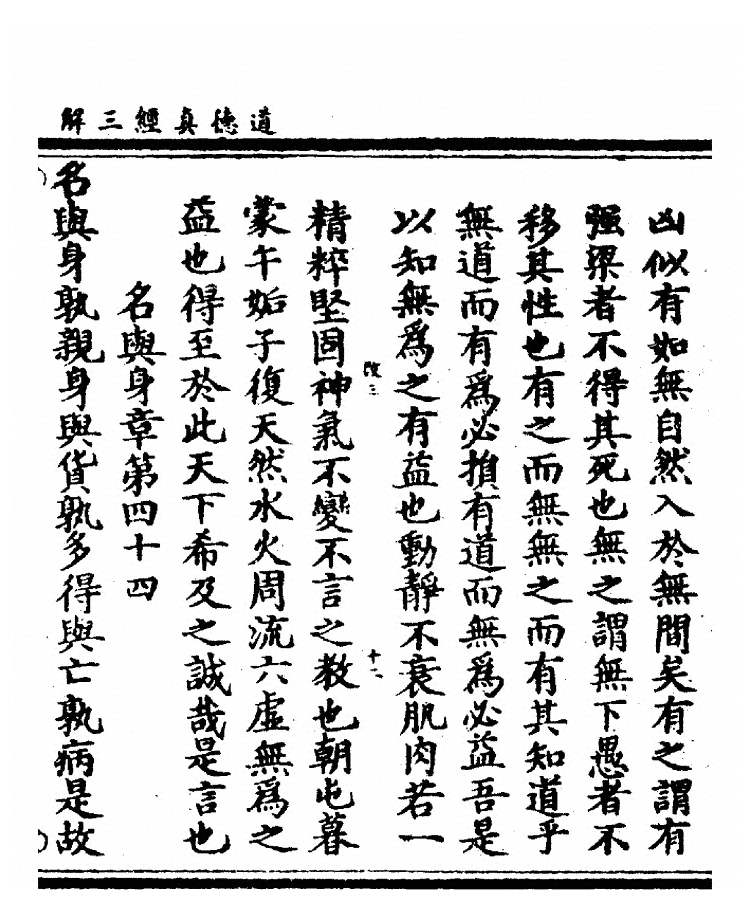 道德真經三解
凶似有如無自然入於無間矣有之謂有
强梁者不得其死也無之謂無下愚者不
移其性也有之而無無之而有其知道乎
無道而有爲必損有道而無爲必益吾是
以知無爲之有益也動靜不衰肌肉若一
改三
十二
精粹堅固神氣不變不言之教也朝屯暮
蒙午姤子復天然水火周流六虛無爲之
益也得至於此天下希及之誠哉是言也
名與身章第四十四
名與身孰親身與貨孰多得與亡孰病是故